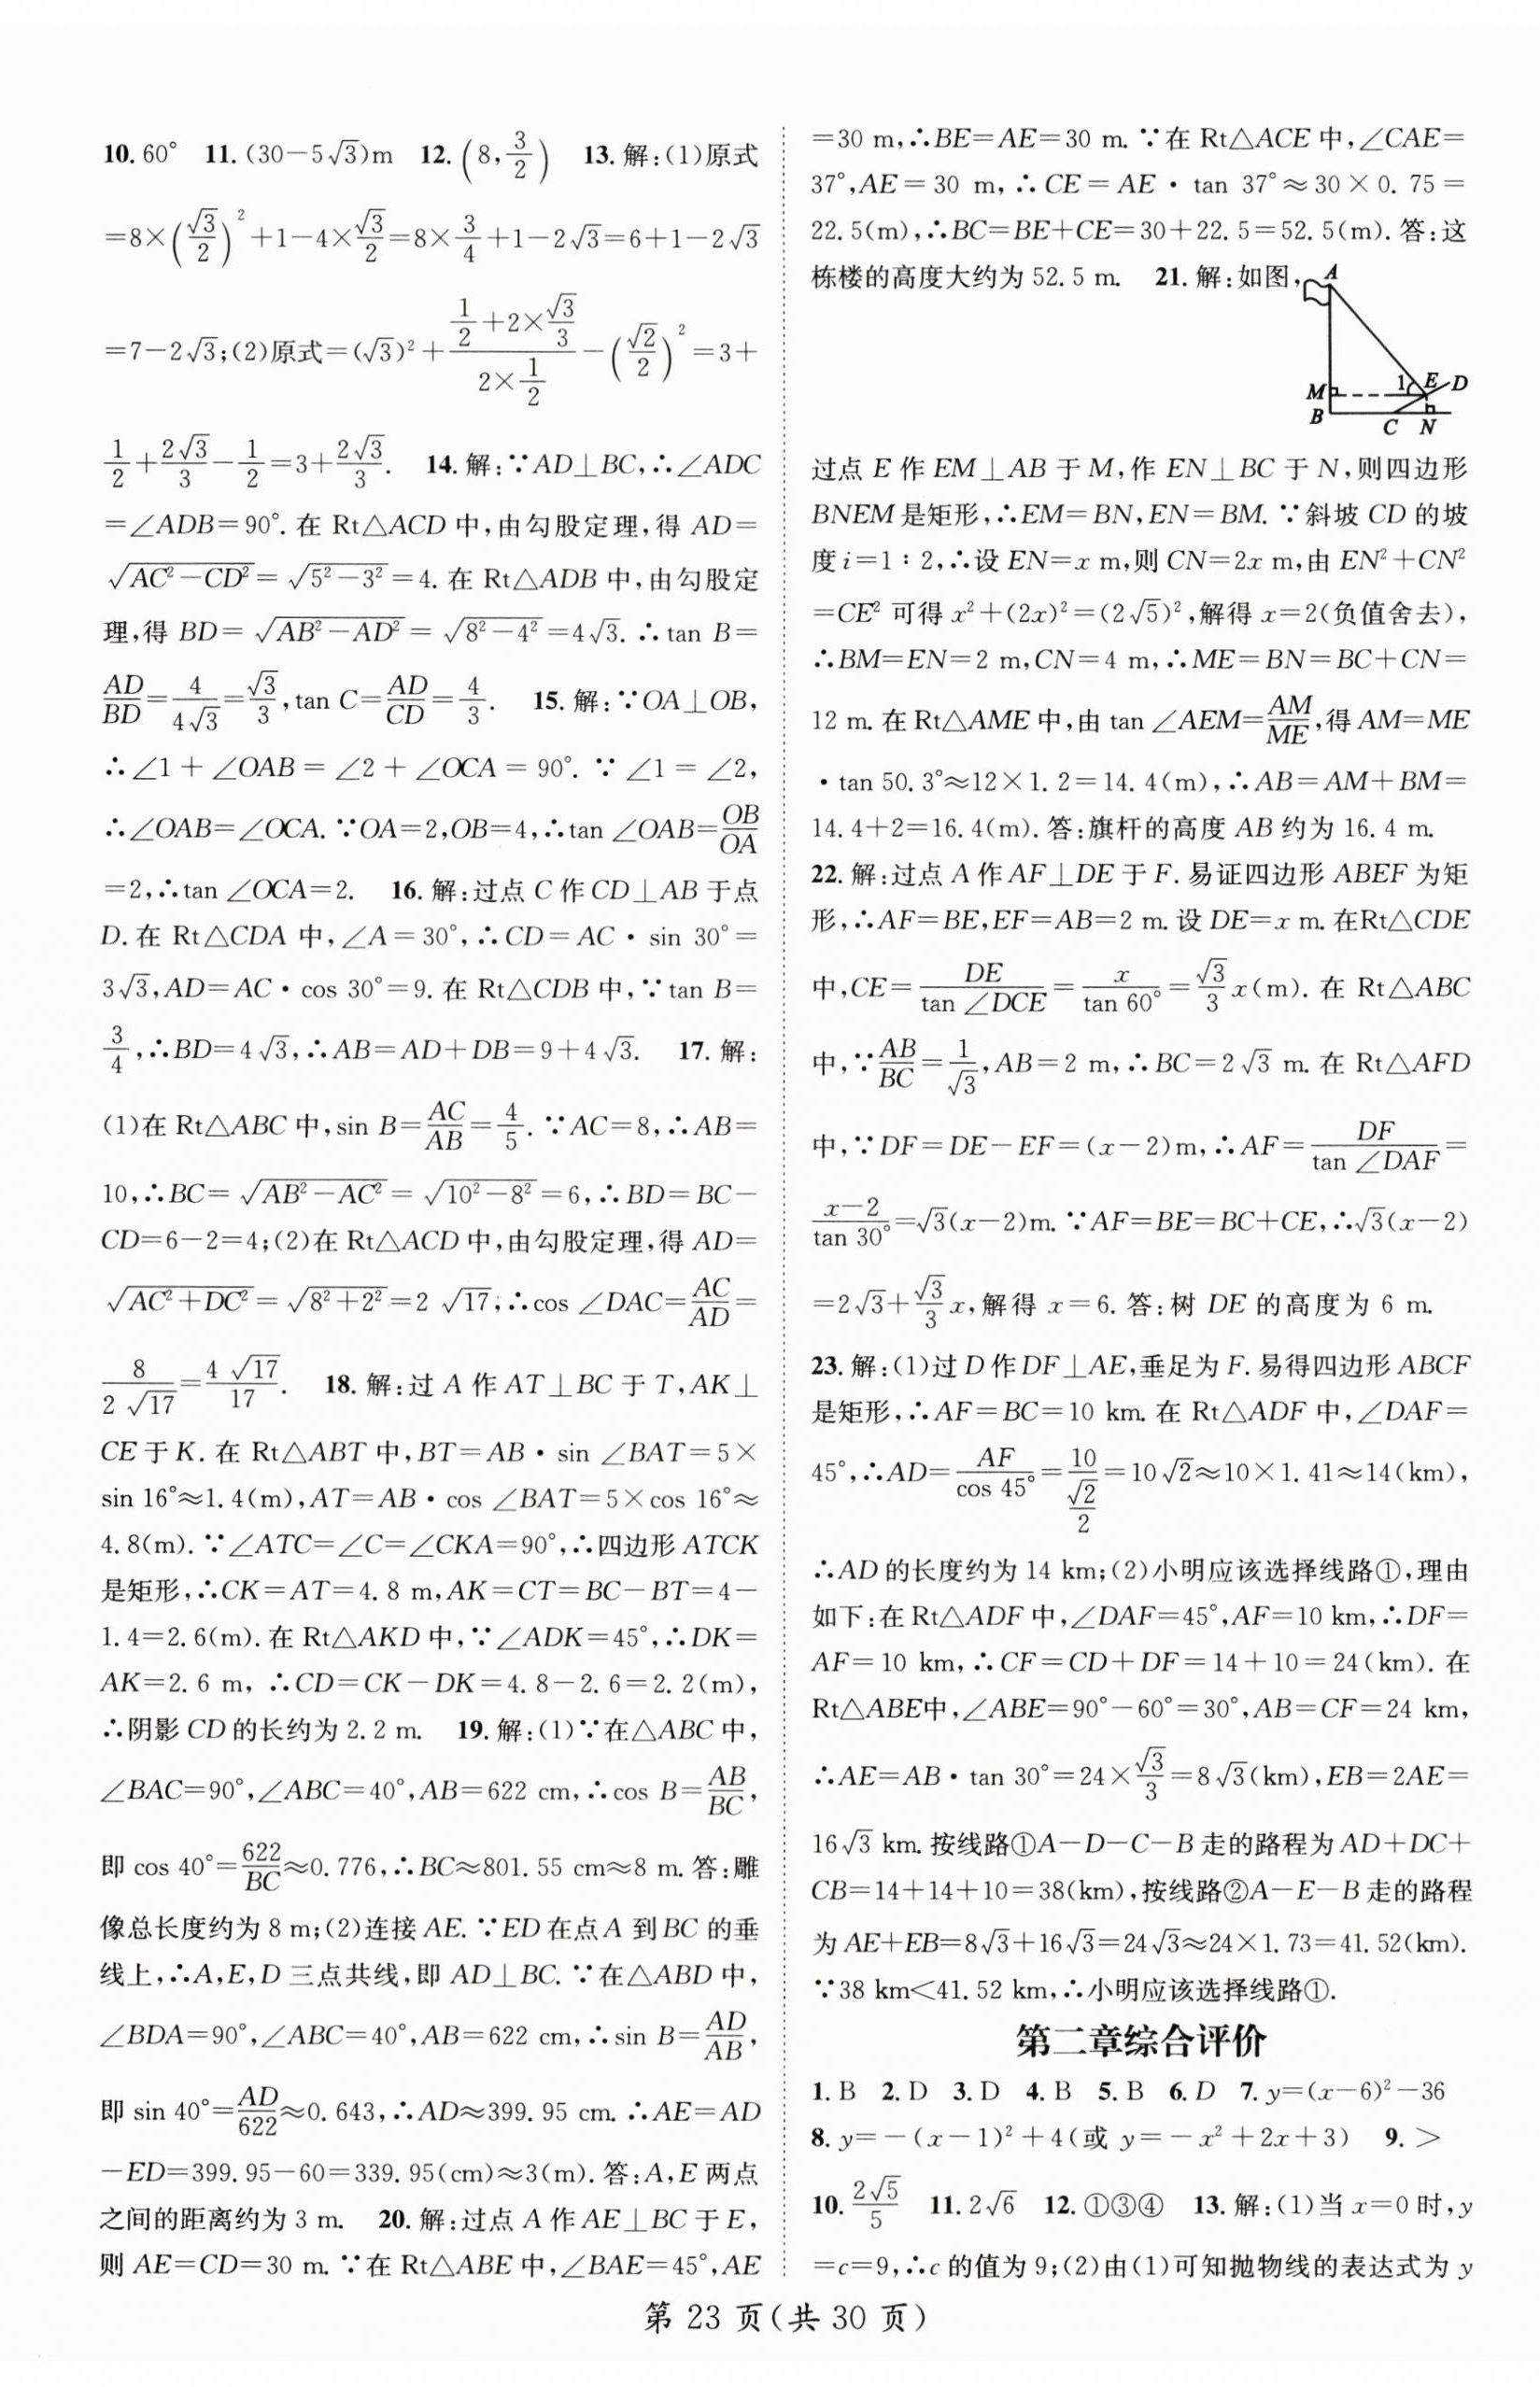 10. 60°  11. (30－5√3)m  12. (8, 3/2)  13. 解:(1)原式
=8×(√3/2)²+1－4×√3/2=8×3/4+1－2√3=6+1－2√3
=7－2√3;(2)原式=(√3)²+(1/2+2×√3/3)/(2×1/2)－(√2/2)²=3+
1/2+2√3/3－1/2=3+2√3/3.  14. 解:∵AD⊥BC,∴∠ADC
=∠ADB=90°. 在 Rt△ACD 中,由勾股定理,得 AD=
√(AC²－CD²)=√(5²－3²)=4. 在 Rt△ADB 中,由勾股定
理,得 BD=√(AB²－AD²)=√(8²－4²)=4√3. ∴tan B=
AD/BD=4/(4√3)=√3/3,tan C=AD/CD=4/3.  15. 解:∵OA⊥OB,
∴∠1+∠OAB=∠2+∠OCA=90°. ∵∠1=∠2,
∴∠OAB=∠OCA. ∵OA=2,OB=4,∴tan ∠OAB=OB/OA
=2,∴tan ∠OCA=2.  16. 解:过点 C 作 CD⊥AB 于点
D. 在 Rt△CDA 中,∠A=30°,∴CD=AC·sin 30°=
3√3,AD=AC·cos 30°=9. 在 Rt△CDB 中,∵tan B=
3/4,∴BD=4√3,∴AB=AD+DB=9+4√3.  17. 解:
(1)在 Rt△ABC 中,sin B=AC/AB=4/5. ∵AC=8,∴AB=
10,∴BC=√(AB²－AC²)=√(10²－8²)=6,∴BD=BC－
CD=6－2=4;(2)在 Rt△ACD 中,由勾股定理,得 AD=
√(AC²+DC²)=√(8²+2²)=2√17,∴cos ∠DAC=AC/AD=
8/(2√17)=4√17/17.  18. 解:过 A 作 AT⊥BC 于 T,AK⊥
CE 于 K. 在 Rt△ABT 中,BT=AB·sin ∠BAT=5×
sin 16°≈1.4(m),AT=AB·cos ∠BAT=5×cos 16°≈
4.8(m). ∵∠ATC=∠C=∠CKA=90°,∴四边形 ATCK
是矩形,∴CK=AT=4.8 m,AK=CT=BC－BT=4－
1.4=2.6(m). 在 Rt△AKD 中,∵∠ADK=45°,∴DK=
AK=2.6 m, ∴CD=CK－DK=4.8－2.6=2.2(m),
∴阴影 CD 的长约为 2.2 m.  19. 解:(1)∵在△ABC 中,
∠BAC=90°,∠ABC=40°,AB=622 cm,∴cos B=AB/BC,
即 cos 40°=622/BC≈0.776,∴BC≈801.55 cm≈8 m. 答:雕
像总长度约为 8 m;(2)连接 AE. ∵ED 在点 A 到 BC 的垂
线上,∴A,E,D 三点共线,即 AD⊥BC. ∵在△ABD 中,
∠BDA=90°,∠ABC=40°,AB=622 cm,∴sin B=AD/AB,
即 sin 40°=AD/622≈0.643,∴AD≈399.95 cm. ∴AE=AD
－ED=399.95－60=339.95(cm)≈3(m). 答:A,E 两点
之间的距离约为 3 m.  20. 解:过点 A 作 AE⊥BC 于 E,
则 AE=CD=30 m. ∵在 Rt△ABE 中,∠BAE=45°,AE
=30 m,∴BE=AE=30 m. ∵在 Rt△ACE 中,∠CAE=
37°,AE=30 m,∴CE=AE·tan 37°≈30×0.75=
22.5(m),∴BC=BE+CE=30+22.5=52.5(m). 答:这
栋楼的高度大约为 52.5 m.  21. 解:如图,
A
1 E D
M
B
C N
过点 E 作 EM⊥AB 于 M,作 EN⊥BC 于 N,则四边形
BNEM 是矩形,∴EM=BN,EN=BM. ∵斜坡 CD 的坡
度 i=1∶2,∴设 EN=x m,则 CN=2x m,由 EN²+CN²
=CE² 可得 x²+(2x)²=(2√5)²,解得 x=2(负值舍去),
∴BM=EN=2 m,CN=4 m,∴ME=BN=BC+CN=
12 m. 在 Rt△AME 中,由 tan ∠AEM=AM/ME,得 AM=ME
·tan 50.3°≈12×1.2=14.4(m),∴AB=AM+BM=
14.4+2=16.4(m). 答:旗杆的高度 AB 约为 16.4 m.
22. 解:过点 A 作 AF⊥DE 于 F. 易证四边形 ABEF 为矩
形,∴AF=BE,EF=AB=2 m. 设 DE=x m. 在Rt△CDE
中,CE=DE/tan ∠DCE=x/tan 60°=√3/3 x(m). 在 Rt△ABC
中,∵AB/BC=1/√3,AB=2 m,∴BC=2√3 m. 在 Rt△AFD
中,∵DF=DE－EF=(x－2)m,∴AF=DF/tan ∠DAF=
(x－2)/tan 30°=√3(x－2)m. ∵AF=BE=BC+CE,∴√3(x－2)
=2√3+√3/3 x,解得 x=6. 答:树 DE 的高度为 6 m.
23. 解:(1)过 D 作 DF⊥AE,垂足为 F. 易得四边形 ABCF
是矩形,∴AF=BC=10 km. 在 Rt△ADF 中,∠DAF=
45°,∴AD=AF/cos 45°=10/(√2/2)=10√2≈10×1.41≈14(km),
∴AD 的长度约为 14 km;(2)小明应该选择线路①,理由
如下:在 Rt△ADF 中,∠DAF=45°,AF=10 km,∴DF=
AF=10 km,∴CF=CD+DF=14+10=24(km). 在
Rt△ABE中,∠ABE=90°－60°=30°,AB=CF=24 km,
∴AE=AB·tan 30°=24×√3/3=8√3(km),EB=2AE=
16√3 km. 按线路①A－D－C－B 走的路程为 AD+DC+
CB=14+14+10=38(km),按线路②A－E－B 走的路程
为 AE+EB=8√3+16√3=24√3≈24×1.73=41.52(km).
∵38 km<41.52 km,∴小明应该选择线路①.
第二章综合评价
1. B  2. D  3. D  4. B  5. B  6. D  7. y=(x－6)²－36
8. y=－(x－1)²+4(或 y=－x²+2x+3)  9. >
10. 2√5/5  11. 2√6  12. ①③④  13. 解:(1)当 x=0 时,y
=c=9,∴c 的值为 9;(2)由(1)可知抛物线的表达式为 y
第 23 页(共 30 页)